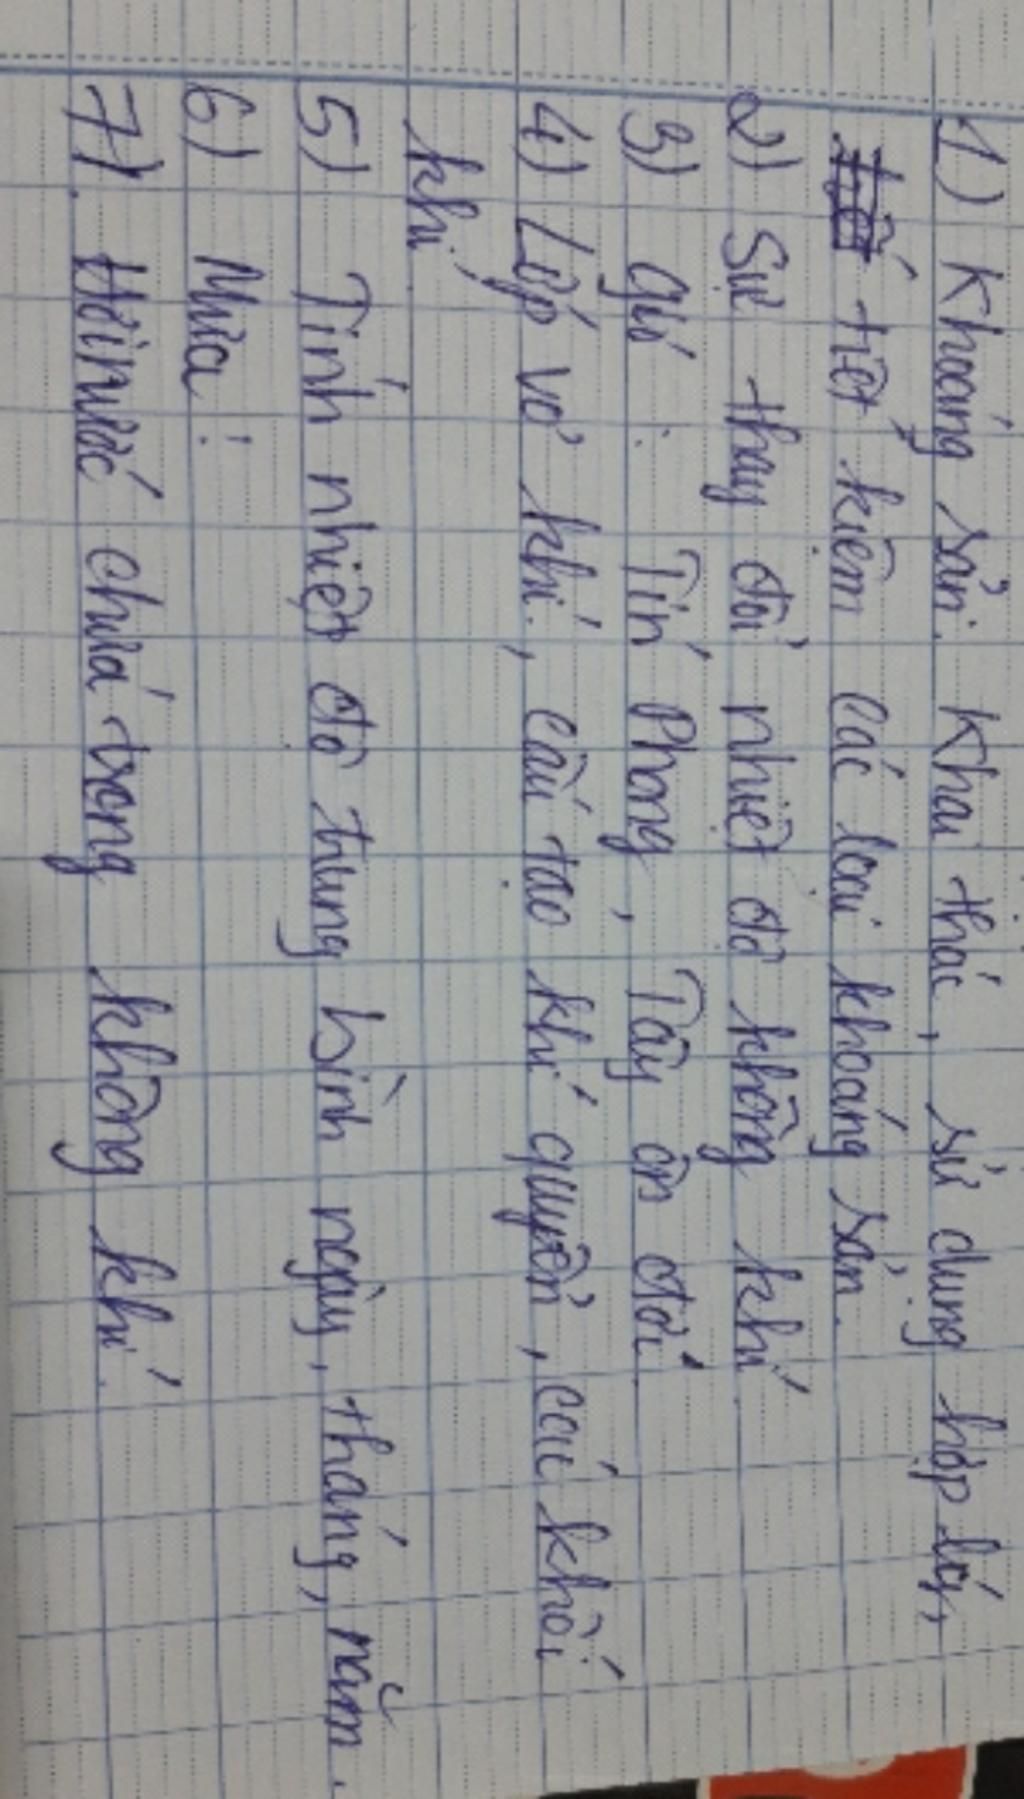 1) Khoáng sản. Khai thác, sử dụng hợp lý,
tiết kiệm các loại khoáng sản.
2) Sự thay đổi nhiệt độ không khí
3) Gió : Tín Phong, Tây ôn đới
4) Lớp vỏ khí, cấu tạo khí quyển, các khối
khí.
5) Tính nhiệt độ trung bình ngày, tháng, năm.
6) Mưa:
7) Hơi nước chứa trong không khí.